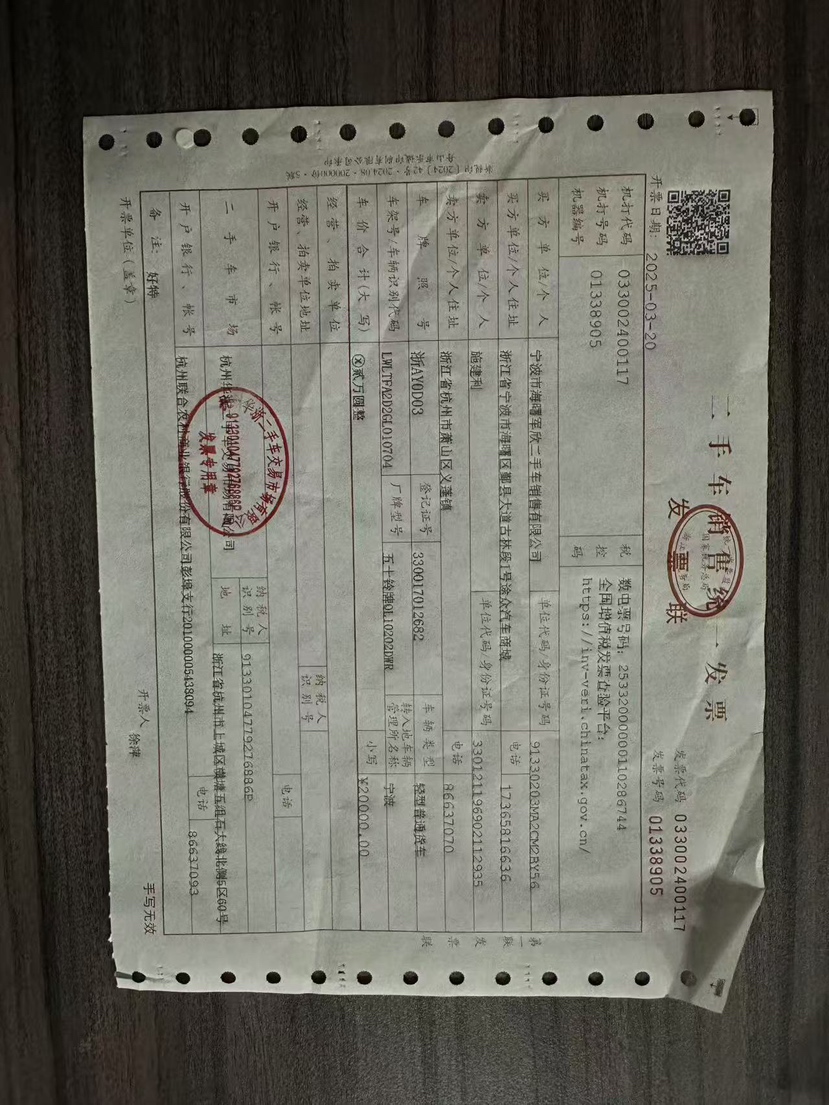 二手车销售统一发票
发票联
发票代码 033002400117
发票号码 01338905
开票日期: 2025-03-20
机打代码 033002400117
机打号码 01338905
机器编号
税控码
数电票号码: 25332000000110286744
全国增值税发票查验平台:
https://inv-veri.chinatax.gov.cn/
买方单位/个人 宁波市海曙军欣二手车销售有限公司 单位代码/身份证号码 91330203MA2CM2BY56
买方单位/个人住址 浙江省宁波市海曙区鄞县大道古林段1号途众汽车商城 电话 17365816636
卖方单位/个人 施建利 单位代码/身份证号码 330121196902112935
卖方单位/个人住址 浙江省杭州市萧山区义蓬镇 电话 86637070
车牌照号 浙AY0D03 登记证号 330017012682 车辆类型 轻型普通货车
车架号/车辆识别代码 LWLTFA2D2GL010704 厂牌型号 五十铃牌QL10202DWR 转入地车辆管理所名称 宁波
车价合计(大写) ⊗贰万圆整 小写 ¥20000.00
经营、拍卖单位
经营、拍卖单位地址 纳税人识别号
开户银行、帐号 电话
二手车市场 纳税人识别号 91330104779276886P
地址 浙江省杭州市上城区
开户银行、帐号 杭州联合农村商业银行股份有限公司彭埠支行201000005438094 电话 86637093
备注: 好特
开票单位(盖章) 开票人 徐萍 手写无效
第一联 发票联
91330104779276886P
发票专用章
国家税务总局